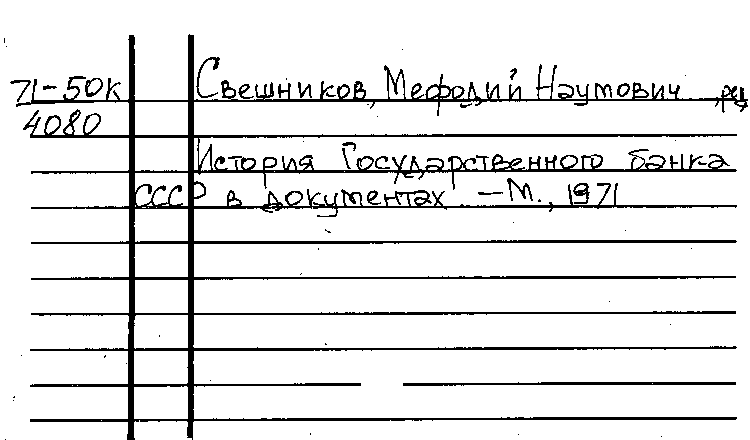 71-50к Свешников, Мефодий Наумович, рец
4080
История Государственного банка
СССР в документах. - М., 1971